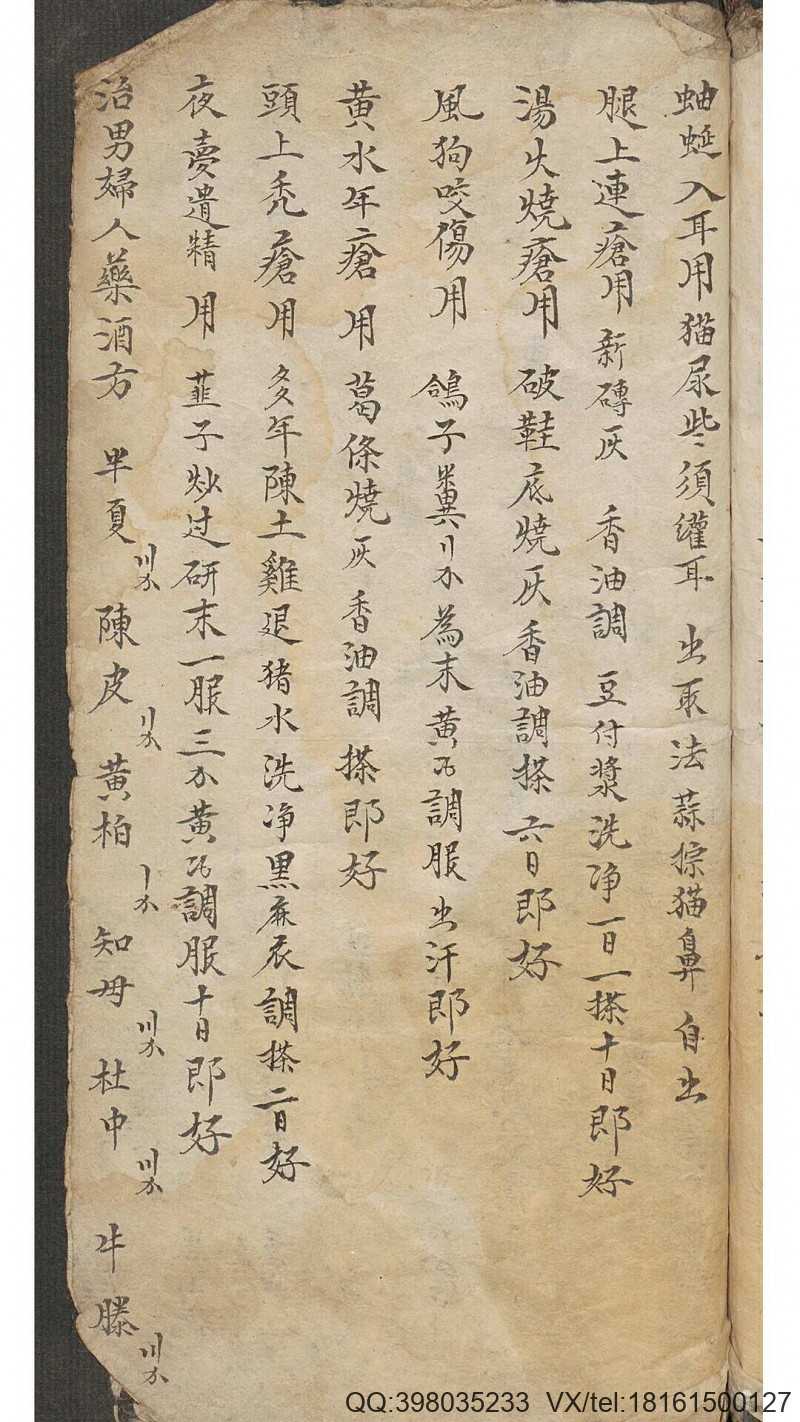 蚰蜒入耳用猫尿些須鑵耳 出取法蒜擦猫鼻自出
腿上連瘡用 新磚灰 香油調 豆付漿洗净一日一搽十日郎好
湯火燒瘡用 破鞋底燒灰香油調搽六日郎好
風狗咬傷用 鴿子糞〢分為末黄酒調服出汗郎好
黄水年瘡用 葛條燒灰香油調搽郎好
頭上秃瘡用 多年陳土雞退猪水洗净黑麻衣調搽二日好
夜夣遺精用 韮子炒过研末一服三分黄酒調服十日郎好
治男婦人藥酒方 半夏〢分 陳皮〢分 黄柏〡分 知母〣分 杜中〣分 牛膝〣分
QQ:398035233 VX/tel:18161500127